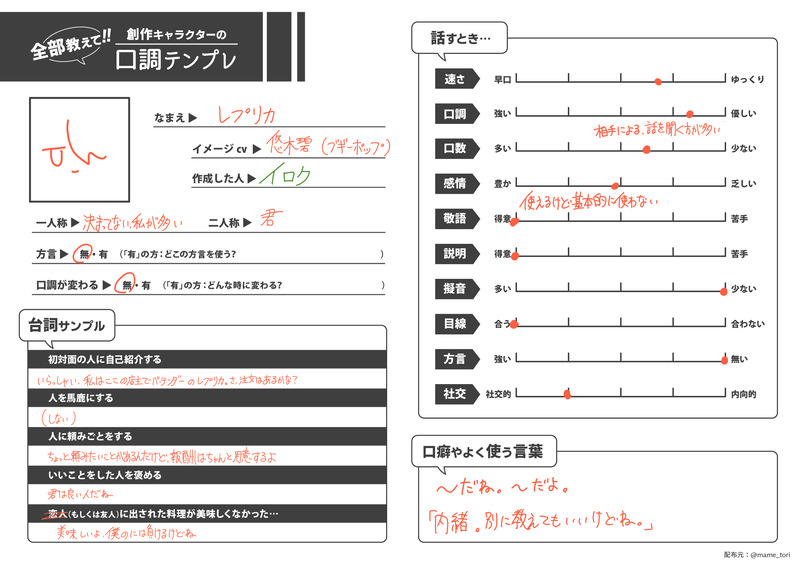 全部教えて!!
創作キャラクターの
口調テンプレ
なまえ▶ レプリカ
イメージcv ▶ 悠木碧(ブギーポップ)
作成した人▶ イロク
一人称▶ 決まてない。私が多い 二人称▶ 君
方言▶ 無・有 (「有」の方：どこの方言を使う? )
口調が変わる▶ 無・有 (「有」の方：どんな時に変わる? )
台詞サンプル
初対面の人に自己紹介する
いらっしゃい、私はここの店主でバーテンダーのレプリカ。さ、注文はあるかな?
人を馬鹿にする
(しない)
人に頼みごとをする
ちょっと頼みたいことがあるんだけど、報酬はちゃんと用意するよ
いいことをした人を褒める
君は良い人だね
恋人(もしくは友人)に出された料理が美味しくなかった…
美味しいよ、僕のには負けるけどね
話すとき…
速さ 早口 ゆっくり
口調 強い 優しい
相手による、話を聞く方が多い
口数 多い 少ない
感情 豊か 乏しい
使えるけど基本的に使わない
敬語 得意 苦手
説明 得意 苦手
擬音 多い 少ない
目線 合う 合わない
方言 強い 無い
社交 社交的 内向的
口癖やよく使う言葉
～だね。～だよ。
「内緒。別に教えてもいいけどね。」
配布元：@mame_tori